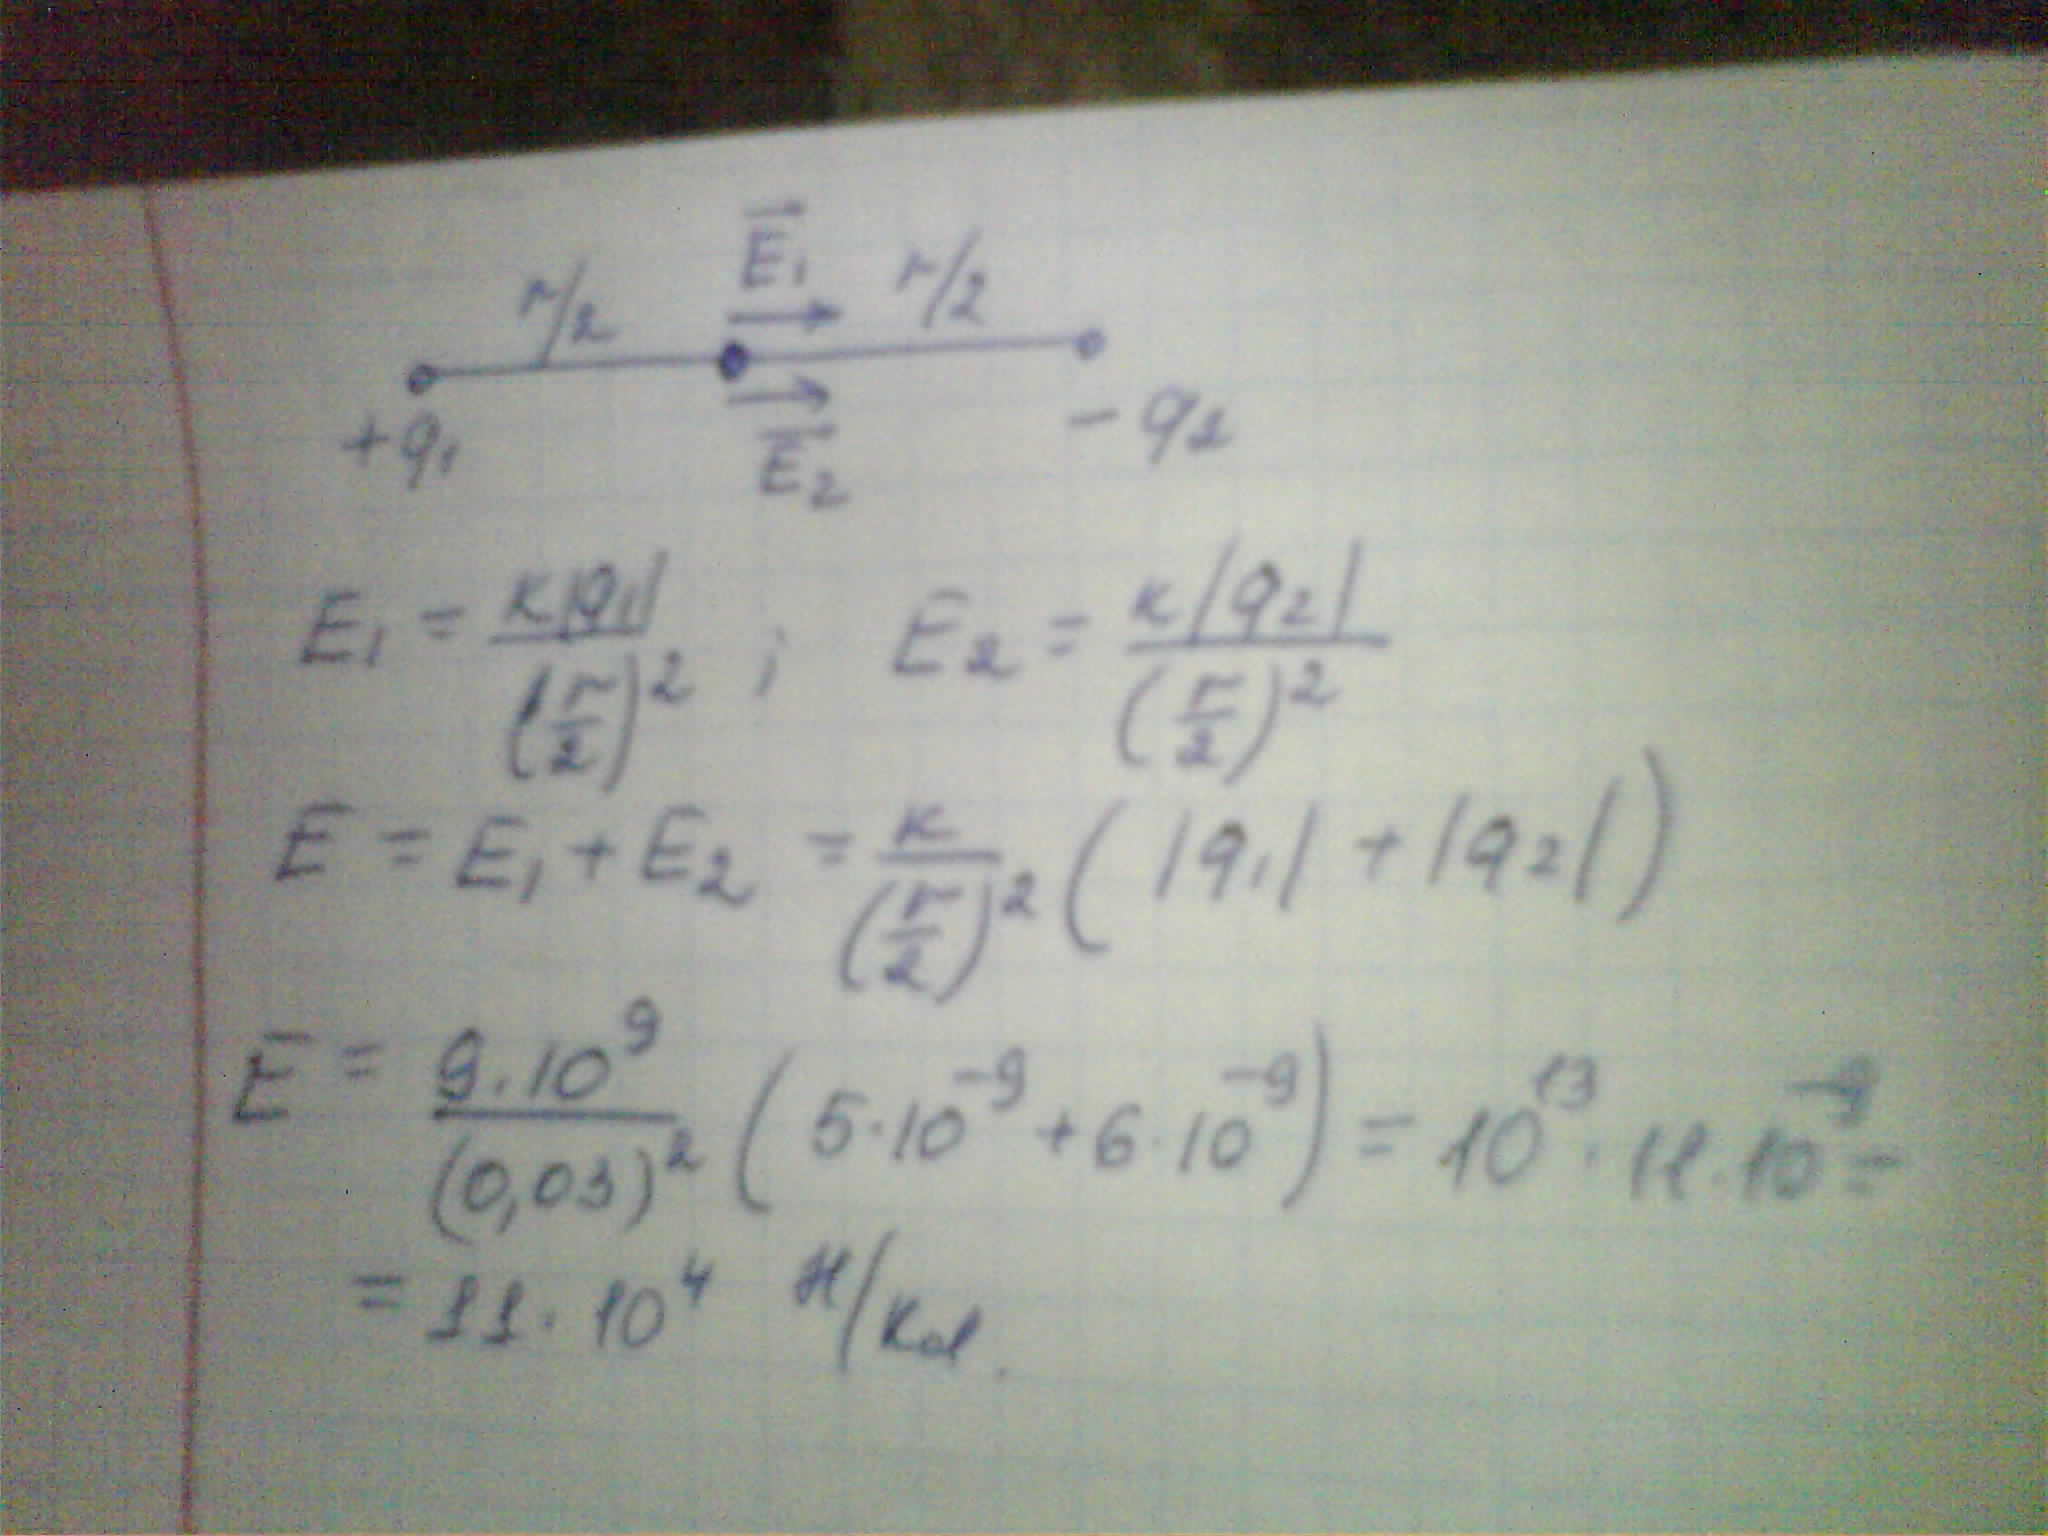 r/2 E⃗₁ r/2
+q₁ E⃗₂ -q₂
E₁ = к|q₁| / (r/2)² ; E₂ = к|q₂| / (r/2)²
E = E₁ + E₂ = к / (r/2)² (|q₁| + |q₂|)
E = 9·10⁹ / (0,03)² (5·10⁻⁹ + 6·10⁻⁹) = 10¹³ · 11·10⁻⁹ =
= 11·10⁴ Н/Кл.